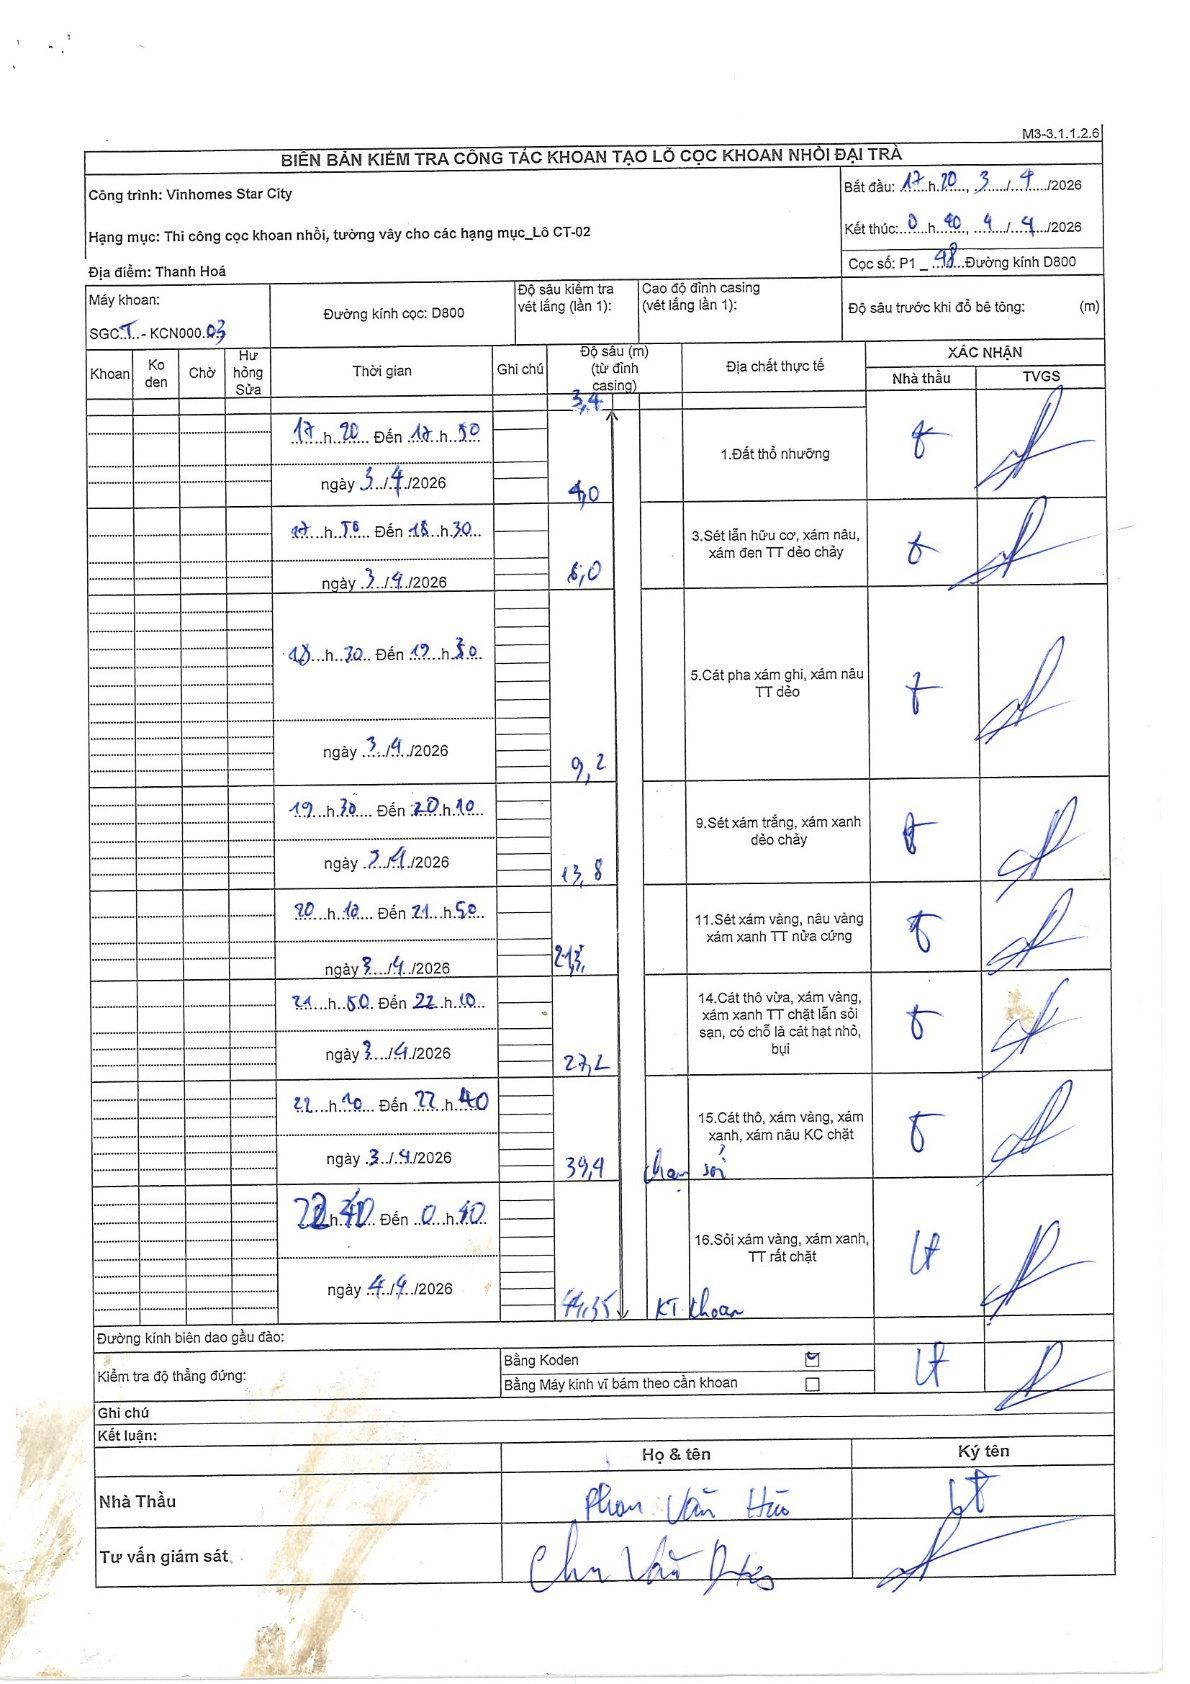 M3-3.1.1.2.6
BIÊN BẢN KIỂM TRA CÔNG TÁC KHOAN TẠO LỖ CỌC KHOAN NHỒI ĐẠI TRÀ
Công trình: Vinhomes Star City
Bắt đầu: 17 h 20, 3 / 4 /2026
Hạng mục: Thi công cọc khoan nhồi, tường vây cho các hạng mục_Lô CT-02
Kết thúc: 0 h 40, 4 / 4 /2026
Địa điểm: Thanh Hoá
Cọc số: P1 _ 98 Đường kính D800
Máy khoan:
SGC T - KCN000.03
Đường kính cọc: D800
Độ sâu kiểm tra vét lắng (lần 1):
Cao độ đỉnh casing (vét lắng lần 1):
Độ sâu trước khi đổ bê tông: (m)
Khoan
Ko den
Chờ
Hư hỏng Sửa
Thời gian
Ghi chú
Độ sâu (m) (từ đỉnh casing)
Địa chất thực tế
XÁC NHẬN
Nhà thầu
TVGS
3,4
17 h 20 Đến 17 h 50
ngày 3 / 4 /2026
4,0
1.Đất thổ nhưỡng
17 h 50 Đến 18 h 30
ngày 3 / 4 /2026
6,0
3.Sét lẫn hữu cơ, xám nâu,
xám đen TT dẻo chảy
18 h 30 Đến 19 h 30
ngày 3 / 4 /2026
9,2
5.Cát pha xám ghi, xám nâu
TT dẻo
19 h 30 Đến 20 h 10
ngày 3 / 4 /2026
13,8
9.Sét xám trắng, xám xanh
dẻo chảy
20 h 10 Đến 21 h 50
ngày 3 / 4 /2026
11.Sét xám vàng, nâu vàng
xám xanh TT nửa cứng
21 h 50 Đến 22 h 10
ngày 3 / 4 /2026
27,2
14.Cát thô vừa, xám vàng,
xám xanh TT chặt lẫn sỏi
sạn, có chỗ là cát hạt nhỏ,
bụi
22 h 10 Đến 22 h 40
ngày 3 / 4 /2026
39,4
15.Cát thô, xám vàng, xám
xanh, xám nâu KC chặt
chạm sỏi
22 h 40 Đến 0 h 40
ngày 4 / 4 /2026
44,35
16.Sỏi xám vàng, xám xanh,
TT rất chặt
KT khoan
Đường kính biên dao gầu đào:
Kiểm tra độ thẳng đứng:
Bằng Koden
Bằng Máy kinh vĩ bám theo cần khoan
Ghi chú
Kết luận:
Họ & tên
Ký tên
Nhà Thầu
Phan Văn
Tư vấn giám sát
Chu Văn